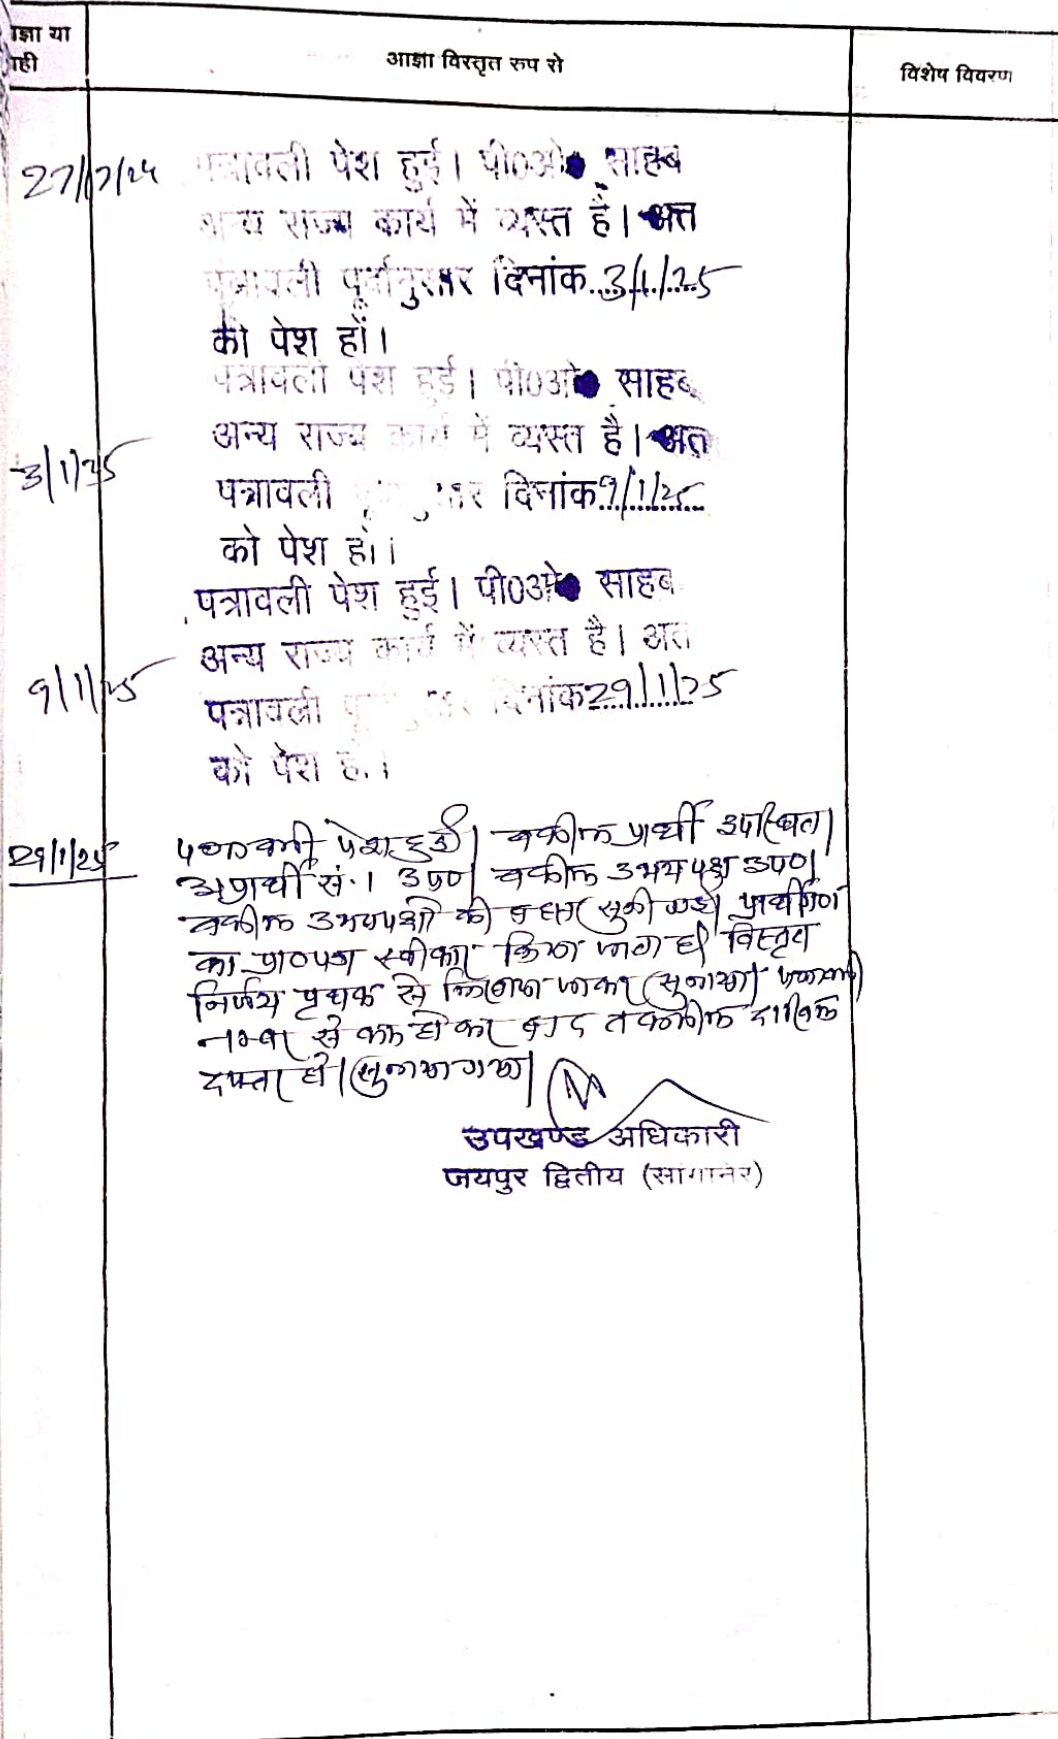 ज्ञा या
ाही
आज्ञा विस्तृत रुप से
विशेष विवरण
27/12/24
पत्रावली पेश हुई। पी०ओ० साहब
अन्य राज्य कार्य में व्यस्त है। अत
पत्रावली पूर्वानुसार दिनांक..3/1/25
को पेश हों।
पत्रावली पेश हुई। पी०ओ० साहब
3/1/25
अन्य राज्य कार्य में व्यस्त है। अत
पत्रावली पूर्वानुसार दिनांक 9/1/25
को पेश हों।
पत्रावली पेश हुई। पी०ओ० साहब
9/1/25
अन्य राज्य कार्य में व्यस्त है। अत
पत्रावली पूर्वानुसार दिनांक 29/1/25
को पेश हों।
29/1/25
पत्रावली पेश हुई। वकील प्रार्थी उपस्थित।
अप्रार्थी सं.1 उप०। वकील उभयपक्ष उप०।
वकील उभयपक्षो की बहस सुनी गई। प्रार्थीगण
का प्रा०पत्र स्वीकार किया जाता है। विस्तृत
निर्णय पृथक से लिखाया जाकर सुनाया। पत्रावली
नम्बर से कम होकर बाद तकमील दाखिल
दफ्तर हो। सुनाया गया।
उपखण्ड अधिकारी
जयपुर द्वितीय (सांगानेर)